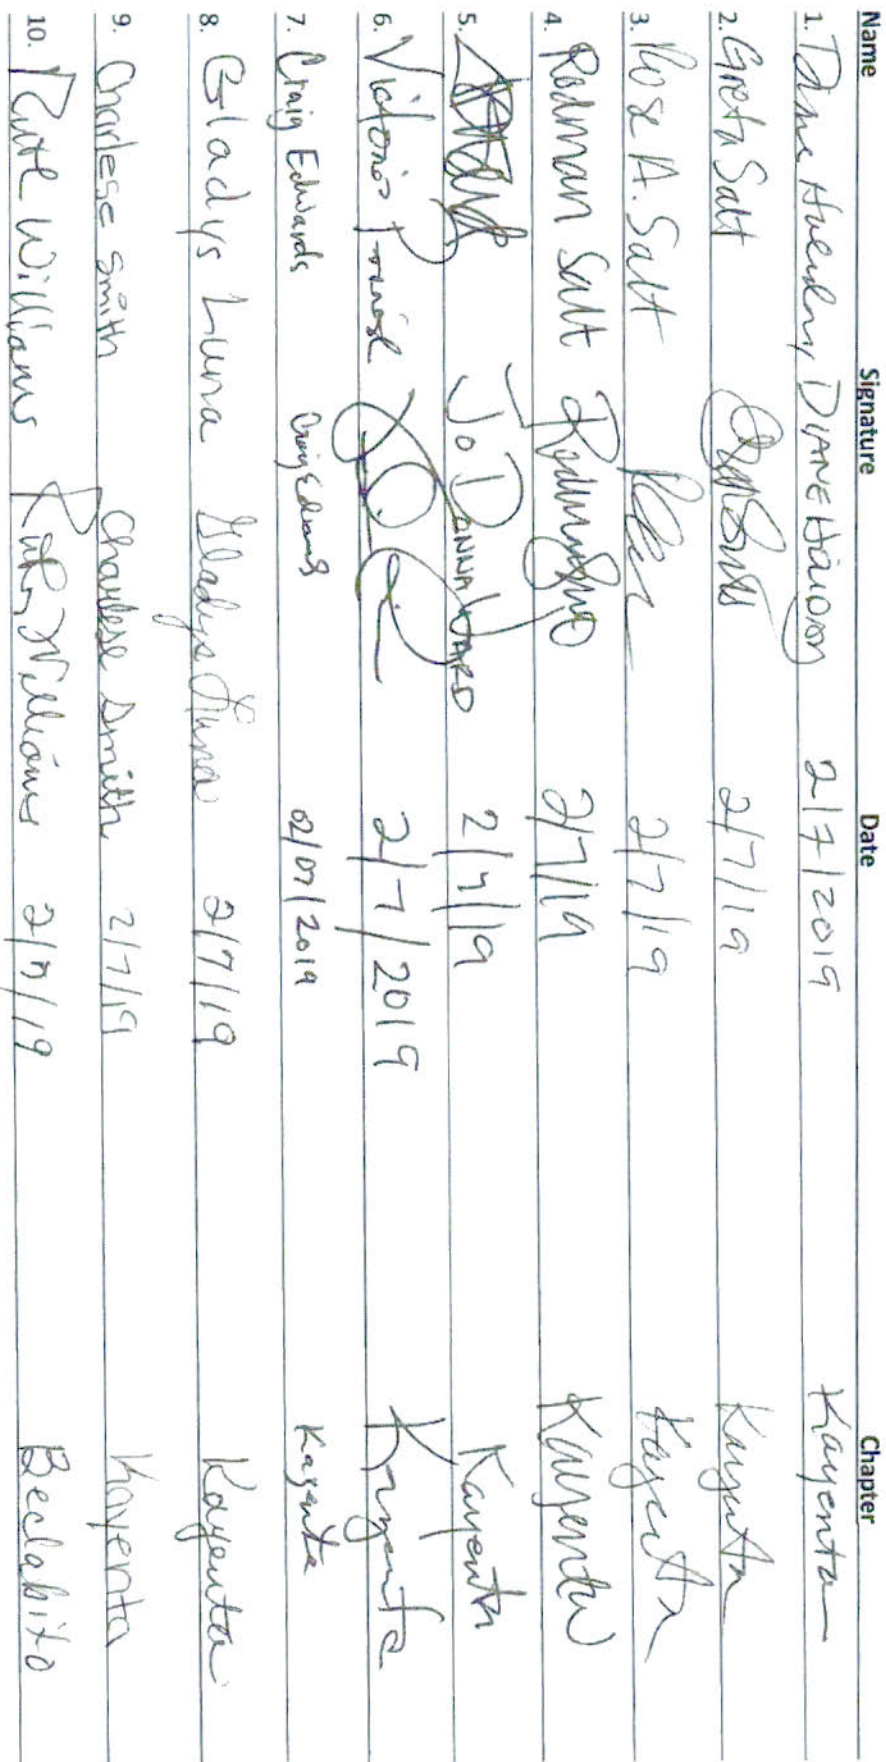 Name Signature Date Chapter
1. Diane DIANE 2/7/2019 Kayenta
2. Greta Salt 2/7/19 Kayenta
3. Rose A. Salt 2/7/19 Kayenta
4. Redman Salt 2/7/19 Kayenta
5. Jo DONNA WARD 2/7/19 Kayenta
6. Victoria 2/7/2019 Kayenta
7. Craig Edwards Craig Edwards 02/07/2019 Kayenta
8. Gladys Luna Gladys Luna 2/7/19 Kayenta
9. Charlese Smith Charlese Smith 2/7/19 Kayenta
10. Ruth Williams Ruth Williams 2/7/19 Beclabito